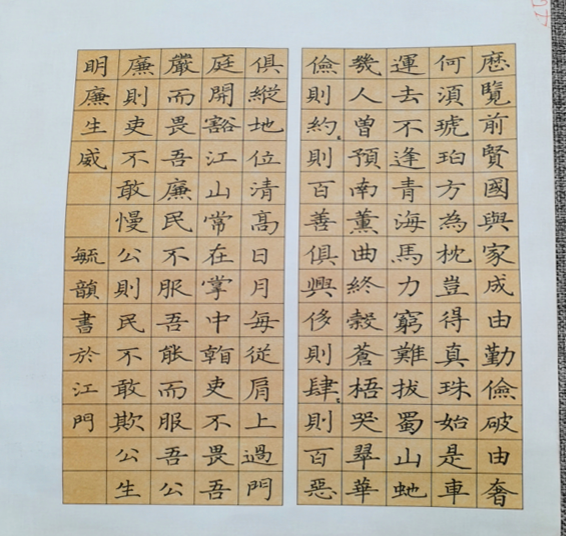 厯覽前賢國與家成由勤儉破由奢
何須琥珀方為枕豈得真珠始是車
運去不逢青海馬力窮難拔蜀山虵
幾人曾預南薰曲終穀蒼梧哭翠華
儉則約則百善俱興侈則肆則百惡
俱縱地位清高日月每從肩上過門
庭開豁江山常在掌中看吏不畏吾
嚴而畏吾廉民不服吾能而服吾公
廉則吏不敢慢公則民不敢欺公生
明廉生威 毓韻書於江門